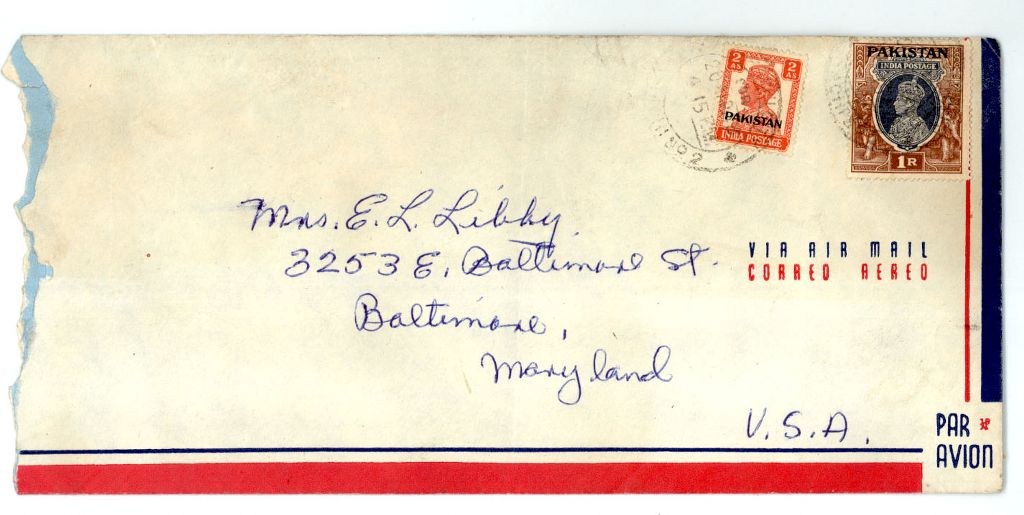 2 AS 2 AS
PAKISTAN
INDIA POSTAGE
PAKISTAN
INDIA POSTAGE
1 R
4 15 PM
Mrs. E. L. Libby
3253 E. Baltimore St.
Baltimore,
Maryland
U.S.A.
VIA AIR MAIL
CORREO AEREO
PAR
AVION